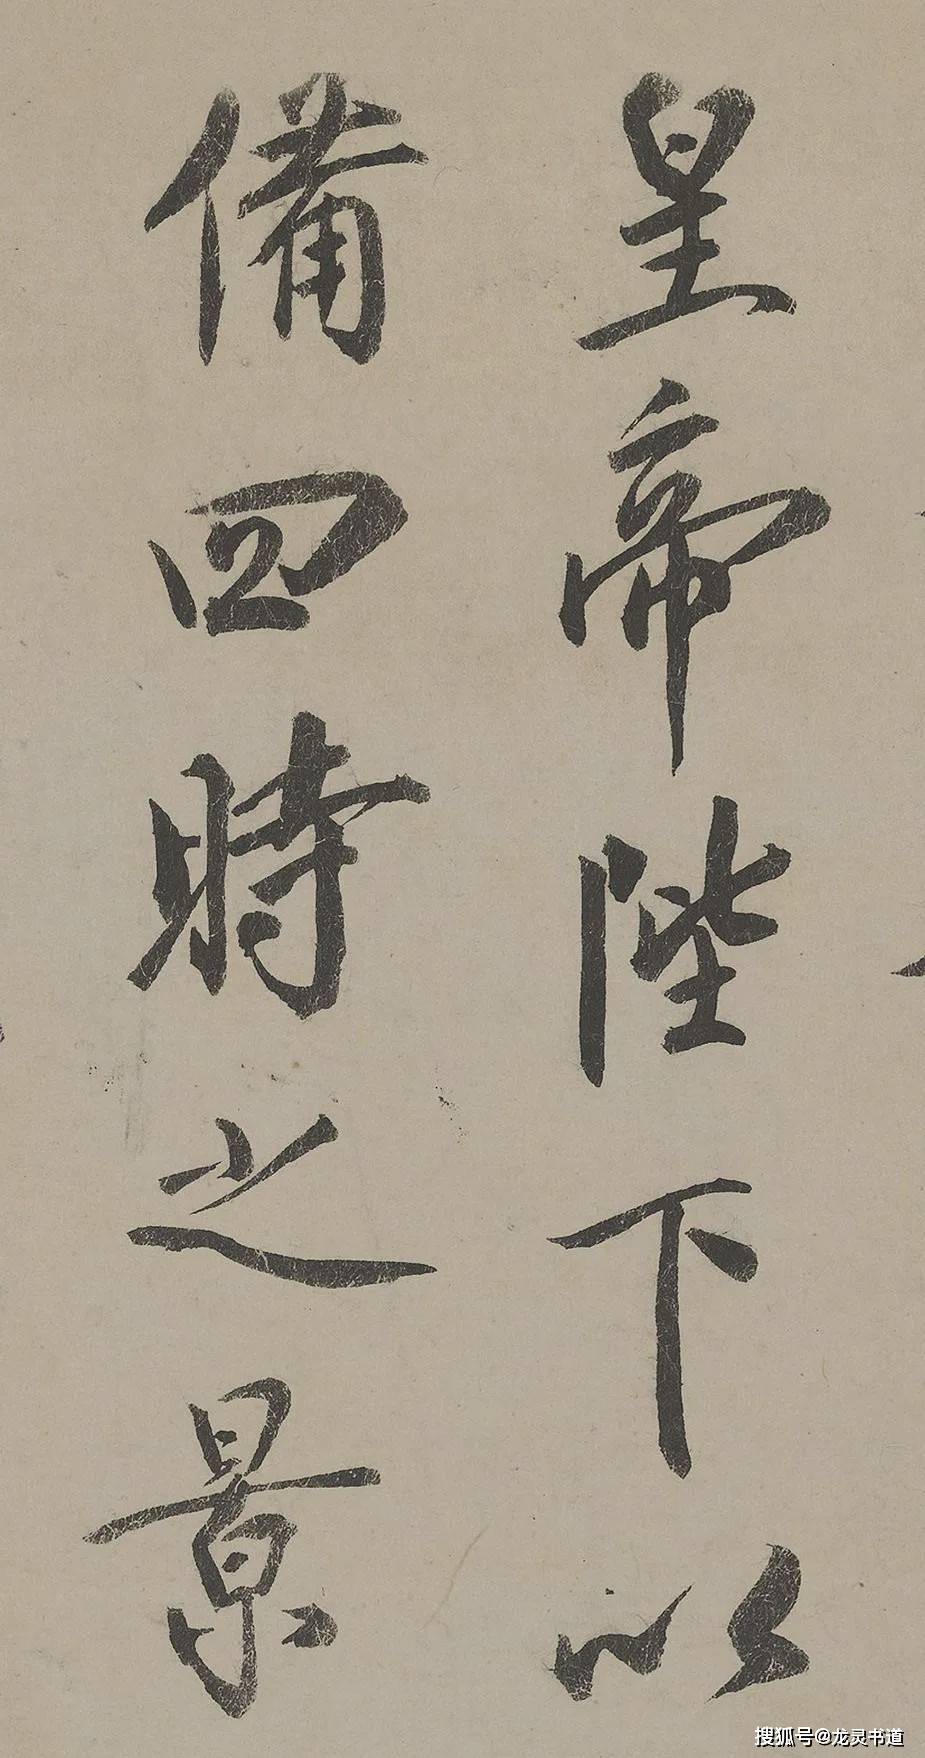 皇帝陛下以
備四時之景
搜狐号@龙灵书道